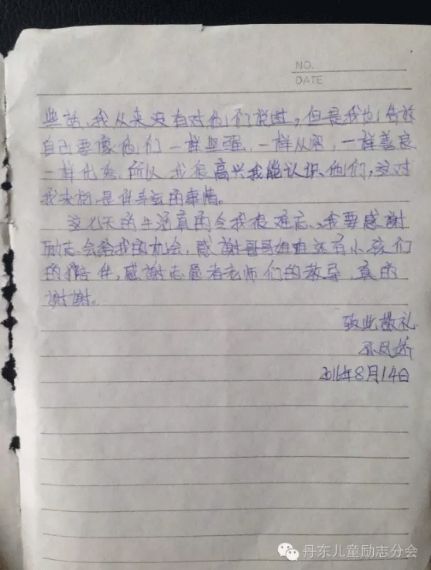 NO.
DATE
些话,我从来没有对他们说过,但是我也告诉
自己要像他们一样坚强,一样从容,一样善良
一样优秀。所以我很高兴我能认识他们,这对
我来说是件幸运的事情。
这几天的生活真的令我很难忘,我要感谢
励志会给我的机会,感谢哥哥姐姐还有小孩们
的陪伴,感谢志愿者老师们的教导,真的
谢谢。
致此敬礼
2016年8月14日
丹东儿童励志分会